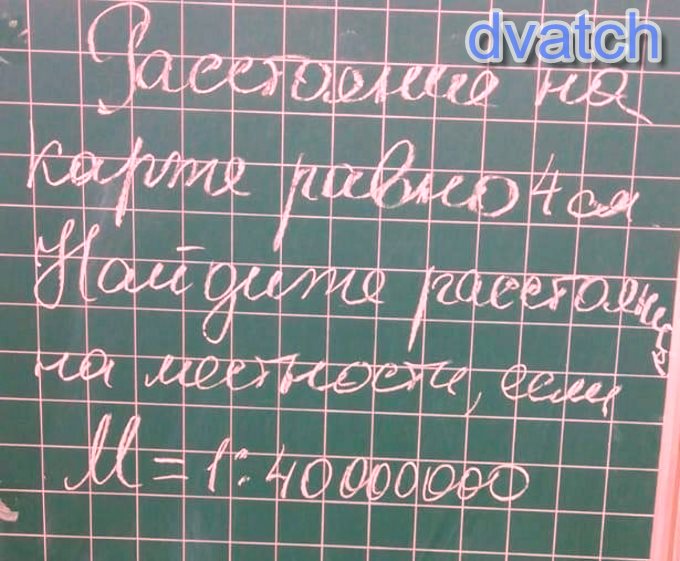 dvatch
Расстояние на
карте равно 4 см
Найдите расстояние
на местности, если
М = 1:40000000